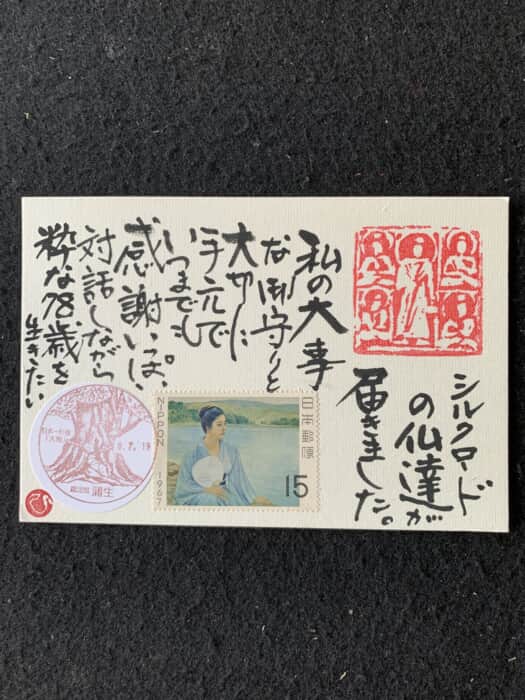 シルクロード
の仏達が
届きました。
私の大事
な御守りと
大切に
手元で
いつまでも
感謝いっぱい
対話しながら
粋な78歳を
生きたい
日本郵便
15
NIPPON
1967
日本一の楠
7.19
鹿児島 蒲生